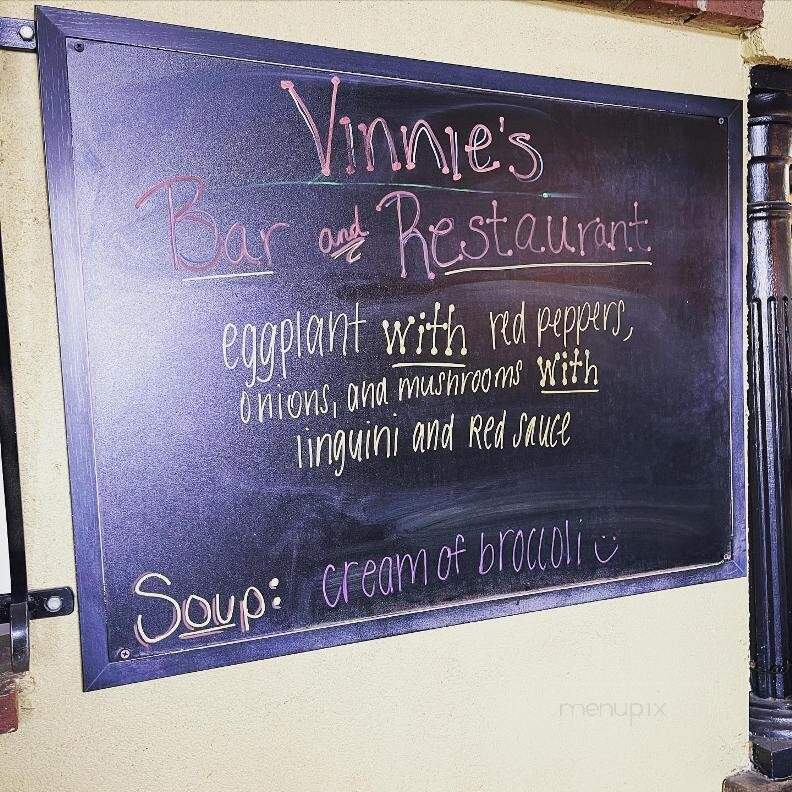 Vinnie's
Bar and Restaurant
eggplant with red peppers,
onions, and mushrooms with
linguini and Red Sauce
Soup: cream of broccoli
menupix